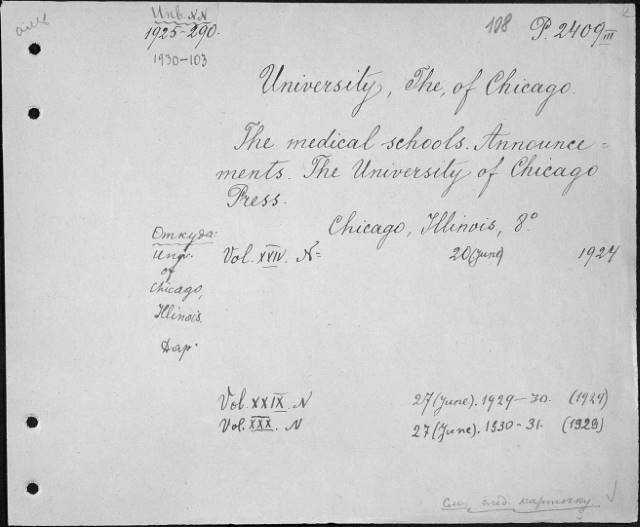 Инв. NN
1925-290.
1930-103
108 P. 2409 III
University, The, of Chicago.
The medical schools. Announce=
ments. The University of Chicago
Press.
Chicago, Illinois, 8°
Откуда:
Унив.
of
Chicago,
Illinois.
Дар.
Vol. XXIV. N= 20 (June) 1924
Vol. XXIX. N 27 (June). 1929-30. (1929)
Vol. XXX. N 27 (June). 1930-31. (1929)
См. след. карточку